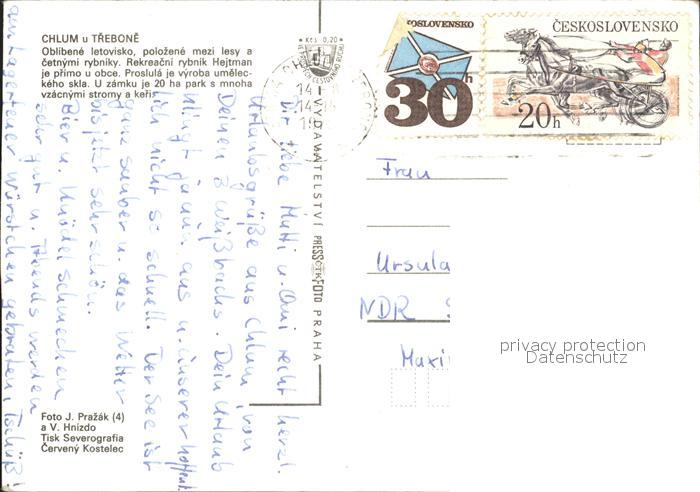 CHLUM u TŘEBONĚ
Oblíbené letovisko, položené mezi lesy a
četnými rybníky. Rekreační rybník Hejtman
je přímo u obce. Proslulá je výroba umělec-
kého skla. U zámku je 20 ha park s mnoha
vzácnými stromy a keři.
Dir liebe Mutti u. Omi recht herzl.
Urlaubsgrüße aus Chlum von
Deinen 3 Weißbachs. Dein Urlaub
klingt ja nun aus u. unserer hoffent
lich nicht so schnell. Der See ist
ganz sauber u. das Wetter
bis jetzt sehr schön.
Bier u. Knödel schmecken
sehr gut u. Abends werden
am Lagerfeuer Würstchen gebraten. Tschüß!
Foto J. Pražák (4)
a V. Hnízdo
Tisk Severografia
Červený Kostelec
VYDAVATELSTVÍ PRESSFOTO PRAHA
Kčs 0,20
ČESKOSLOVENSKO
30h
ČESKOSLOVENSKO
20h
Frau
Ursula
NDR
Maxi
privacy protection
Datenschutz